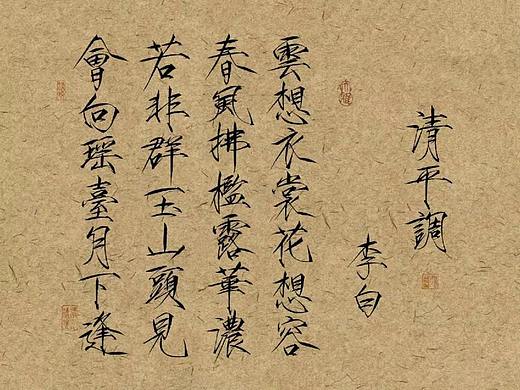 清平調
李白
雲想衣裳花想容
春風拂檻露華濃
若非群玉山頭見
會向瑤臺月下逢